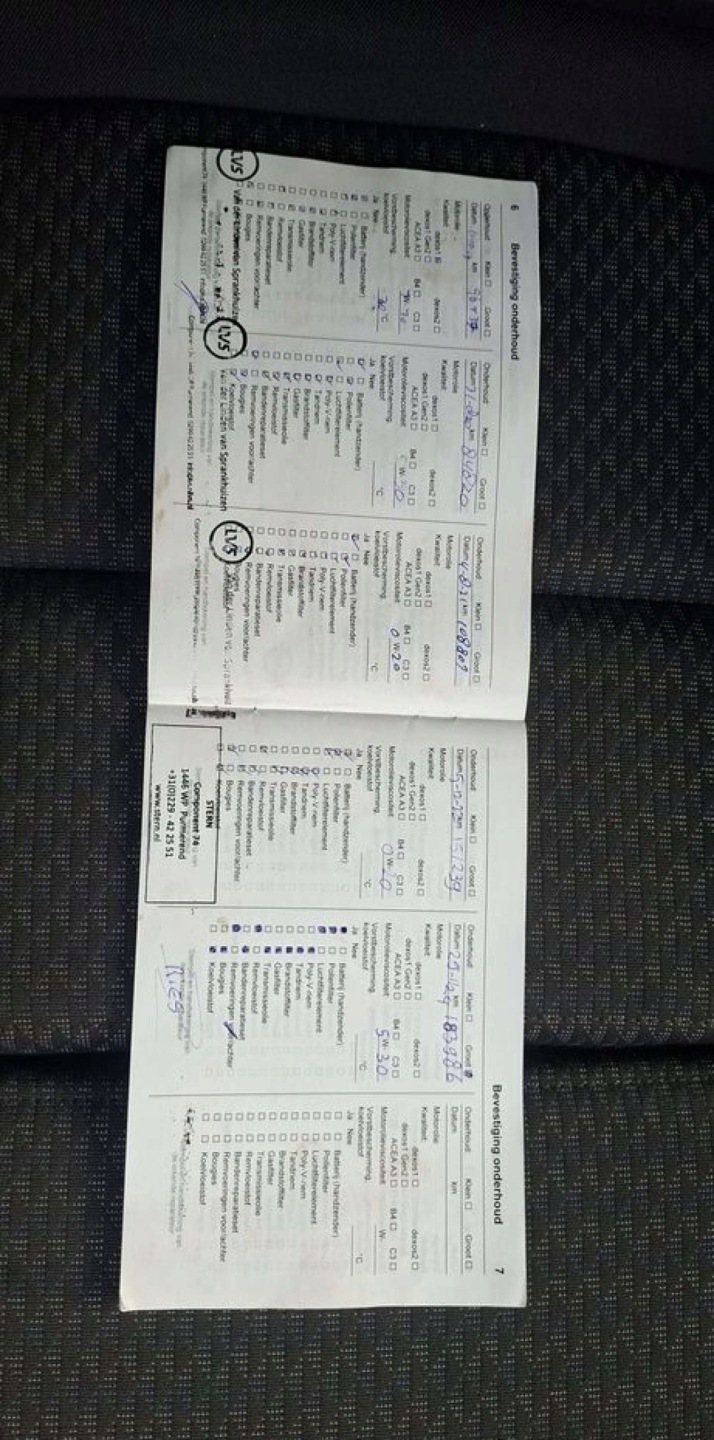 6 Bevestiging onderhoud
Onderhoud: Klein Groot
Datum km 96432
Motorolie
Kwaliteit: dexos1 dexos2
dexos1 Gen2
ACEA A3 B4 C3
Motorolieviscositeit: W-
Vorstbescherming
koelvloeistof °C
Ja Nee
Batterij (handzender)
Pollenfilter
Luchtfilterelement
Poly-V-riem
Tandriem
Brandstoffilter
Gasfilter
Transmissieolie
Remvloeistof
Bandenreparatieset
Remvoeringen voor/achter
Bougies
LVS Van der Linden van Sprankhuizen
Onderhoud: Klein Groot
Datum km 84620
Motorolie
Kwaliteit: dexos1 dexos2
dexos1 Gen2
ACEA A3 B4 C3
Motorolieviscositeit: W-20
Vorstbescherming
koelvloeistof °C
Ja Nee
Batterij (handzender)
Pollenfilter
Luchtfilterelement
Poly-V-riem
Tandriem
Brandstoffilter
Gasfilter
Transmissieolie
Remvloeistof
Bandenreparatieset
Remvoeringen voor/achter
Bougies
Koelvloeistof
LVS van der Linden van Sprankhuizen
Onderhoud: Klein Groot
Datum km 108809
Motorolie
Kwaliteit: dexos1 dexos2
dexos1 Gen2
ACEA A3 B4 C3
Motorolieviscositeit: 0 W-20
Vorstbescherming
koelvloeistof °C
Ja Nee
Batterij (handzender)
Pollenfilter
Luchtfilterelement
Poly-V-riem
Tandriem
Brandstoffilter
Gasfilter
Transmissieolie
Remvloeistof
Bandenreparatieset
Remvoeringen voor/achter
LVS
Bevestiging onderhoud 7
Onderhoud: Klein Groot
Datum km 151239
Motorolie
Kwaliteit: dexos1 dexos2
dexos1 Gen2
ACEA A3 B4 C3
Motorolieviscositeit: 0 W-20
Vorstbescherming
koelvloeistof °C
Ja Nee
Batterij (handzender)
Pollenfilter
Luchtfilterelement
Poly-V-riem
Tandriem
Brandstoffilter
Gasfilter
Transmissieolie
Remvloeistof
Bandenreparatieset
Remvoeringen voor/achter
Bougies
STERN
Component 74
1446 WP Purmerend
+31(0)229 - 42 25 51
www.stern.nl
Onderhoud: Klein Groot
Datum km 183986
Motorolie
Kwaliteit: dexos1 dexos2
dexos1 Gen2
ACEA A3 B4 C3
Motorolieviscositeit: 5 W-30
Vorstbescherming
koelvloeistof °C
Ja Nee
Batterij (handzender)
Pollenfilter
Luchtfilterelement
Poly-V-riem
Tandriem
Brandstoffilter
Gasfilter
Transmissieolie
Remvloeistof
Bandenreparatieset
Remvoeringen voor/achter
Bougies
Koelvloeistof
Onderhoud: Klein Groot
Datum km
Motorolie
Kwaliteit: dexos1 dexos2
dexos1 Gen2
ACEA A3 B4 C3
Motorolieviscositeit: W-
Vorstbescherming
koelvloeistof °C
Ja Nee
Batterij (handzender)
Pollenfilter
Luchtfilterelement
Poly-V-riem
Tandriem
Brandstoffilter
Gasfilter
Transmissieolie
Remvloeistof
Bandenreparatieset
Remvoeringen voor/achter
Bougies
Koelvloeistof